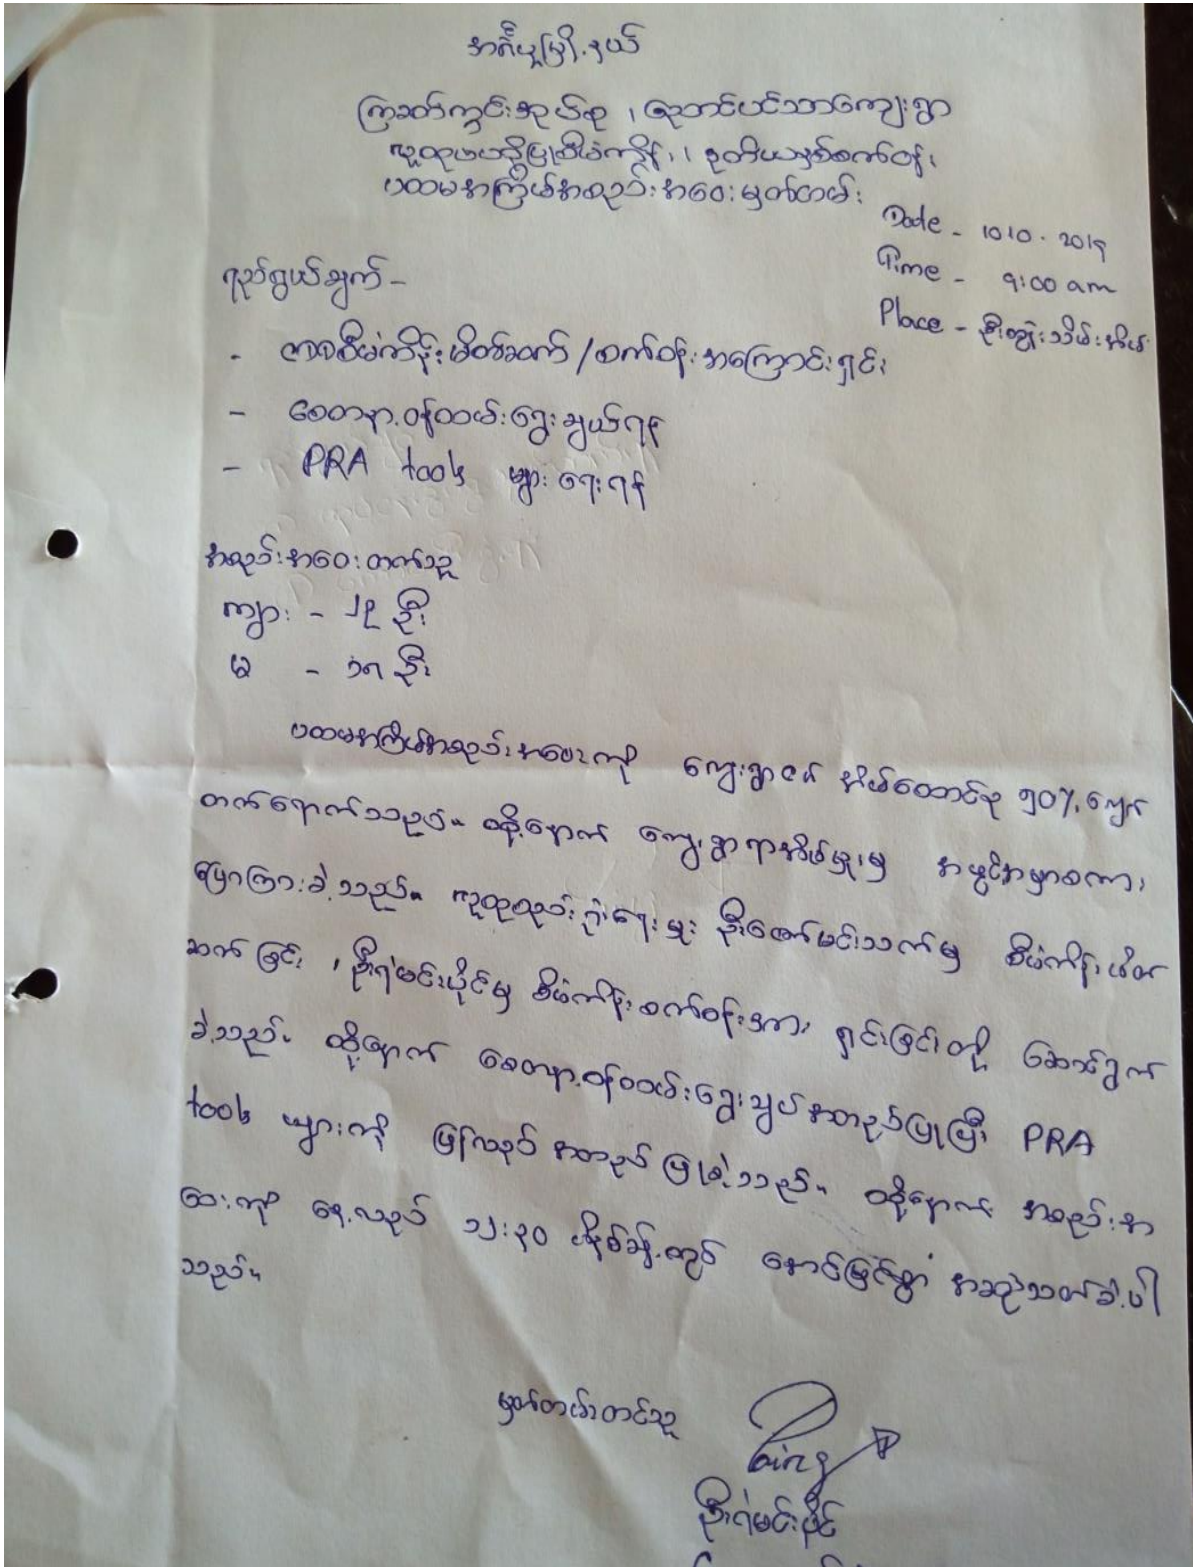 အင်္ဂပူမြို့နယ်
ကြခတ်ကွင်းအုပ်စု ၊ ညောင်ပင်သာကျေးရွာ
လူထုဗဟိုပြုစီမံကိန်း၊ ဒုတိယနှစ်စက်ဝန်း
ပထမအကြိမ်အစည်းအဝေးမှတ်တမ်း
Date - 10.10.2019
Time - 9:00 am
Place -
ရည်ရွယ်ချက် -
- စီမံကိန်းမိတ်ဆက် / စက်ဝန်းအကြောင်းရှင်း
- စေတနာ့ဝန်ထမ်းရွေးချယ်ရန်
- PRA tools များရေးရန်
အစည်းအဝေးတက်သူ
ကျား - ၂၃ ဦး
မ - ၁၈ ဦး
ပထမအကြိမ်အစည်းအဝေးကို ကျေးရွာ၏ အိမ်ထောင်စု ၅၀% ကျော်
တက်ရောက်သည်။ ထို့နောက် ကျေးရွာရာအိမ်မှူးမှ အဖွင့်အမှာစကား
ပြောကြားခဲ့သည်။ လူထုစည်းရုံးရေးမှူး ဦးဇော်မင်းသက်မှ စီမံကိန်းမိတ်
ဆက်ခြင်း ၊ ဦးရဲမင်းပိုင်မှ စီမံကိန်းစက်ဝန်းအား ရှင်းခြင်းတို့ ဆောင်ရွက်
ခဲ့သည်။ ထို့နောက် စေတနာ့ဝန်ထမ်းရွေးချယ် အတည်ပြုပြီး PRA
tools များကို ပြန်လည် အတည်ပြုခဲ့သည်။ ထို့နောက် အစည်းအ
ဝေးကို နေ့လည် ၁၂:၃၀ မိနစ်ခန့်တွင် အောင်မြင်စွာ အဆုံးသတ်ခဲ့ပါ
သည်။
မှတ်တမ်းတင်သူ
ဦးရဲမင်းပိုင်